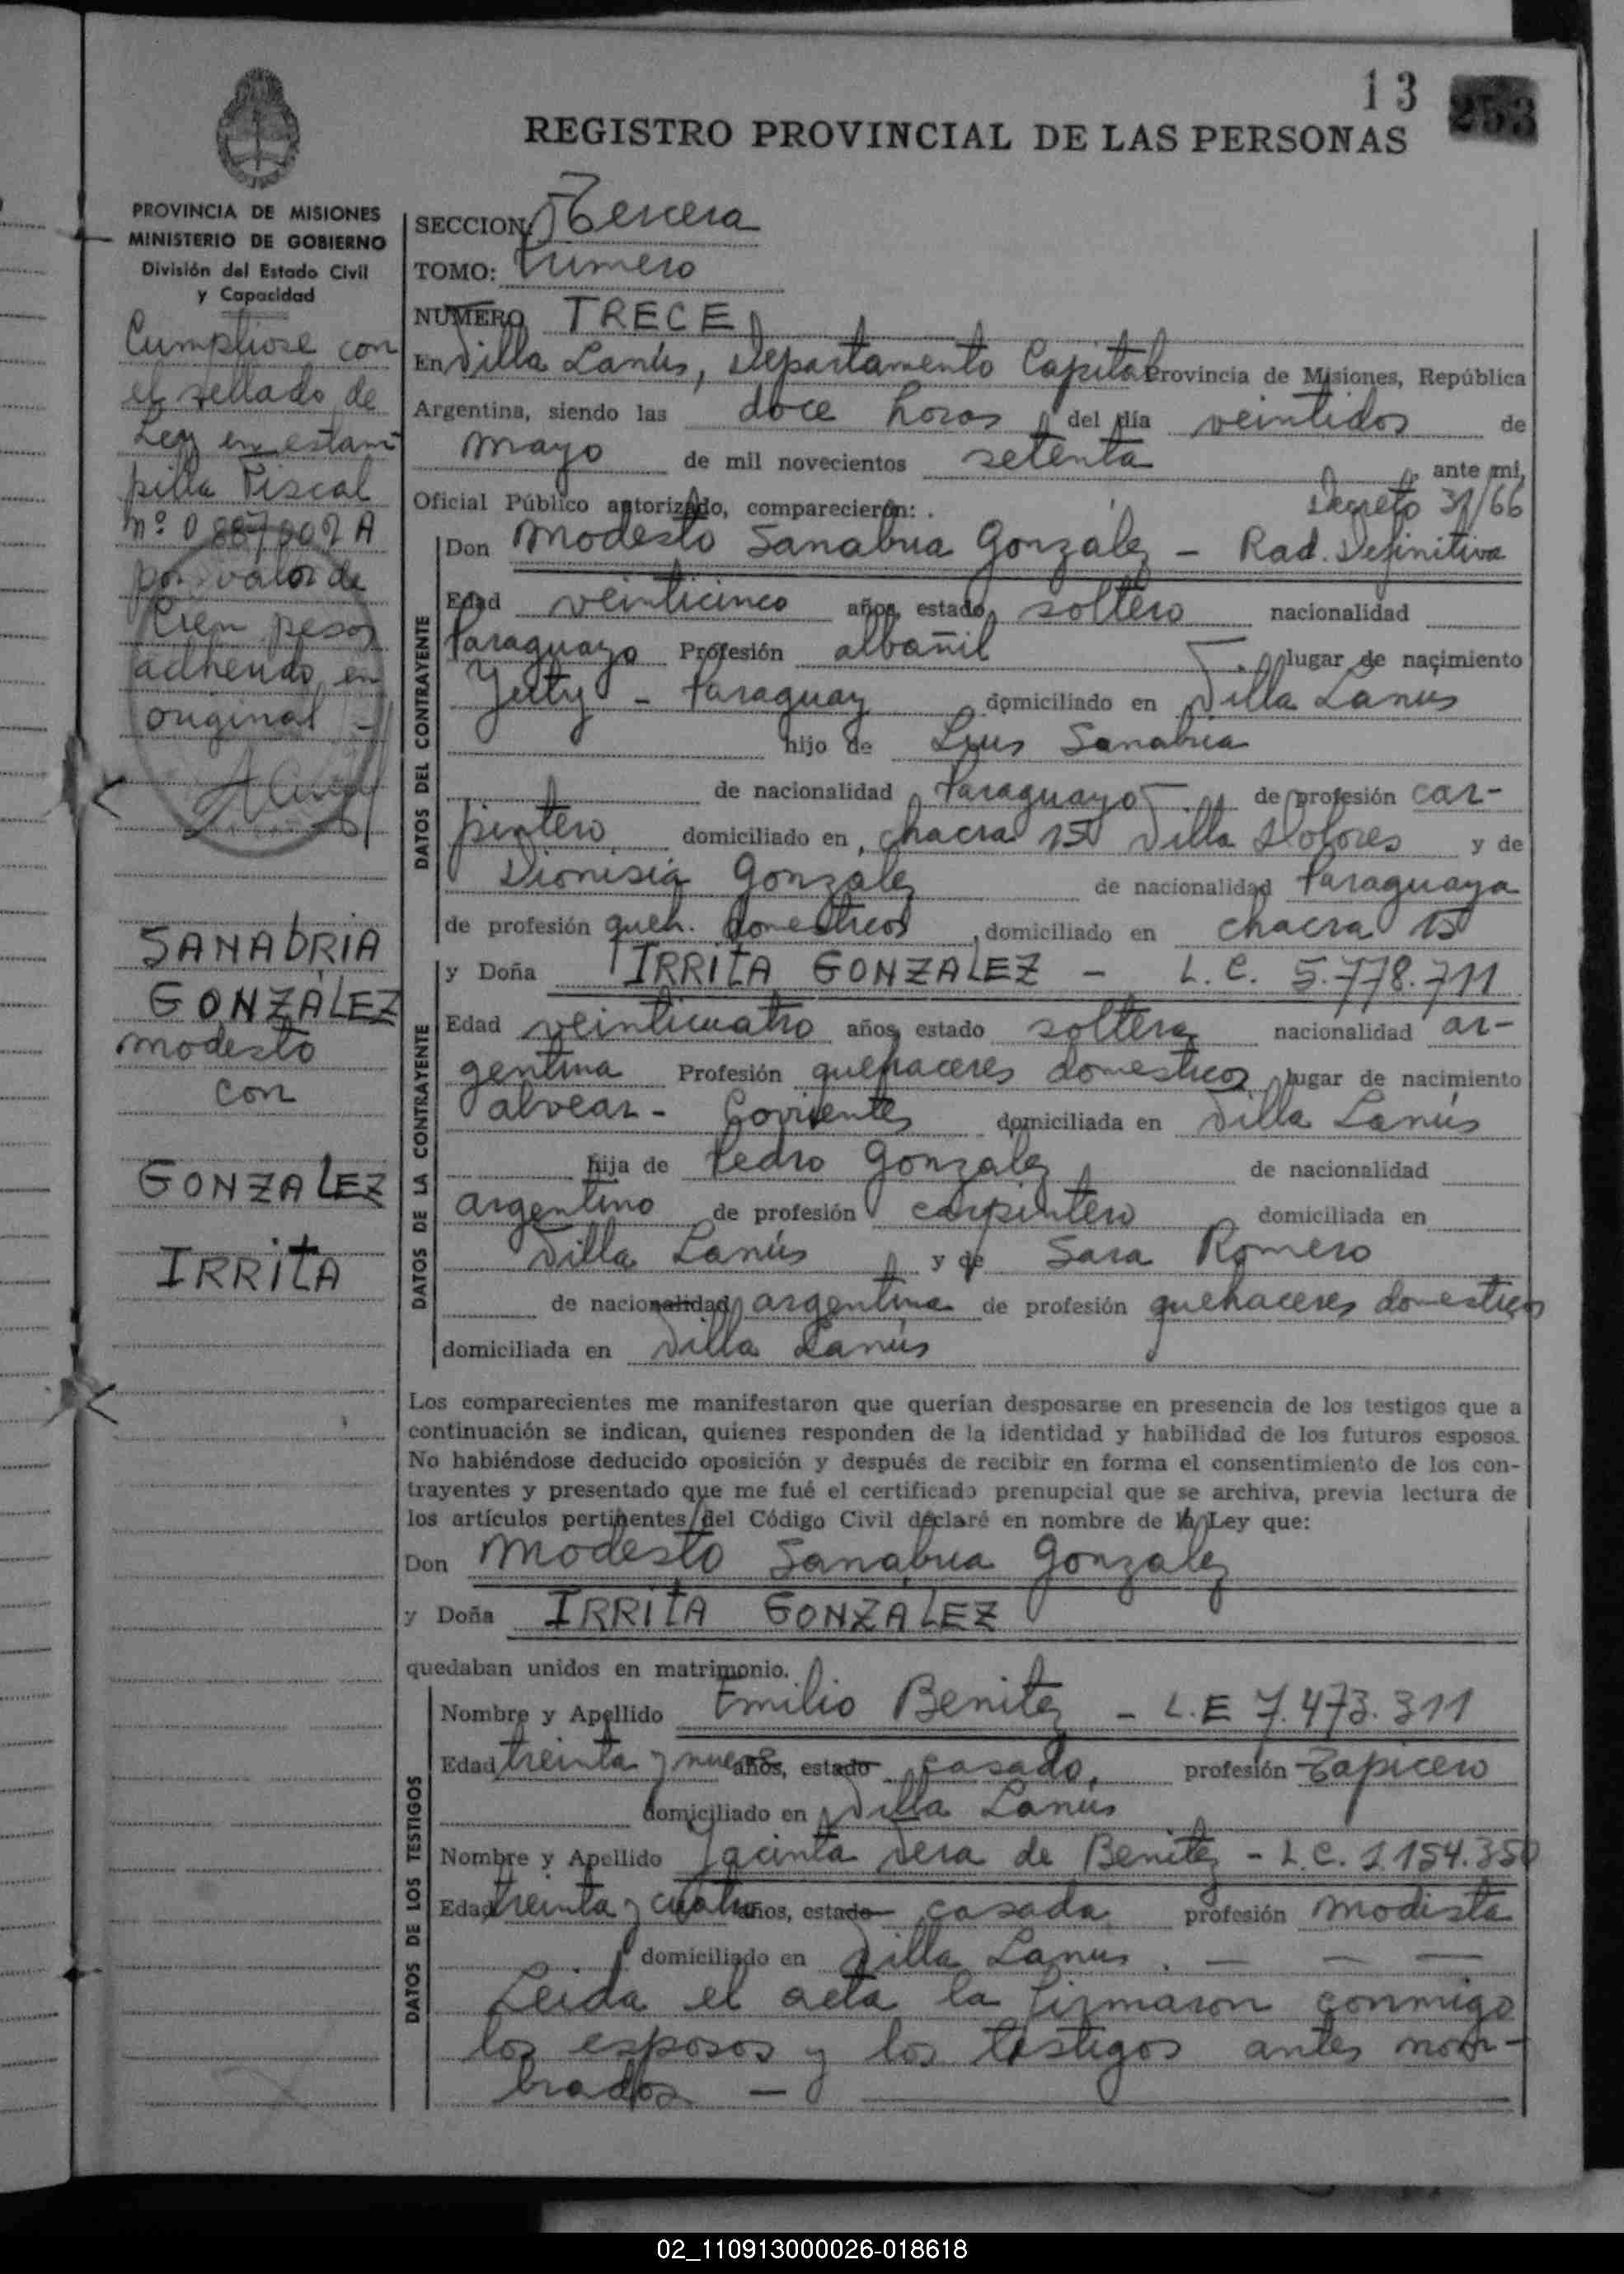 13 253
REGISTRO PROVINCIAL DE LAS PERSONAS
PROVINCIA DE MISIONES
MINISTERIO DE GOBIERNO
División del Estado Civil
y Capacidad
Cumpliose con
el sellado de
Ley en estam-
pilla Fiscal
Nº 0
por valor de
Cien pesos
adherido en
original -
SANABRIA
GONZALEZ
Modesto
con
GONZALEZ
IRRITA
SECCION: Tercera
TOMO: Primero
NUMERO TRECE
En Villa Lanús, Departamento Capital Provincia de Misiones, República
Argentina, siendo las doce horas del día veintidos de
Mayo de mil novecientos setenta, ante mi,
Oficial Público autorizado, comparecierón: . Decreto 31/66
DATOS DEL CONTRAYENTE
Don Modesto Sanabria González - Rad. Definitiva
Edad veinticinco años, estado soltero nacionalidad
Paraguayo Profesión albañil lugar de nacimiento
Yuty - Paraguay domiciliado en Villa Lanus
hijo de Luis Sanabria
de nacionalidad Paraguayo de profesión car-
pintero domiciliado en chacra 150 Villa Dolores y de
Dionisia Gonzalez de nacionalidad Paraguaya
de profesión queh. domesticos domiciliado en chacra 150
DATOS DE LA CONTRAYENTE
y Doña IRRITA GONZALEZ - L. C. 5.778.711
Edad veinticuatro años, estado soltera nacionalidad ar-
gentina Profesión quehaceres domesticos lugar de nacimiento
Alvear - Corrientes domiciliada en Villa Lanús
hija de Pedro Gonzalez de nacionalidad
argentino de profesión carpintero domiciliada en
Villa Lanús y de Sara Romero
de nacionalidad argentina de profesión quehaceres domesticos
domiciliada en Villa Lanús
Los comparecientes me manifestaron que querían desposarse en presencia de los testigos que a
continuación se indican, quienes responden de la identidad y habilidad de los futuros esposos.
No habiéndose deducido oposición y después de recibir en forma el consentimiento de los con-
trayentes y presentado que me fué el certificado prenupcial que se archiva, previa lectura de
los artículos pertinentes del Código Civil declaré en nombre de la Ley que:
Don Modesto Sanabria Gonzalez
y Doña IRRITA GONZALEZ
quedaban unidos en matrimonio.
DATOS DE LOS TESTIGOS
Nombre y Apellido Emilio Benitez - L.E 7.473.311
Edad treinta y nueve años, estado casado, profesión Tapicero
domiciliado en Villa Lanus
Nombre y Apellido Jacinta Vera de Benitez - L.C. 1.154.350
Edad treinta y cuatro años, estado casada profesión Modista
domiciliado en Villa Lanus. — — —
Leida el acta la firmaron conmigo
los esposos y los testigos antes nom-
brados —
02_110913000026-018618